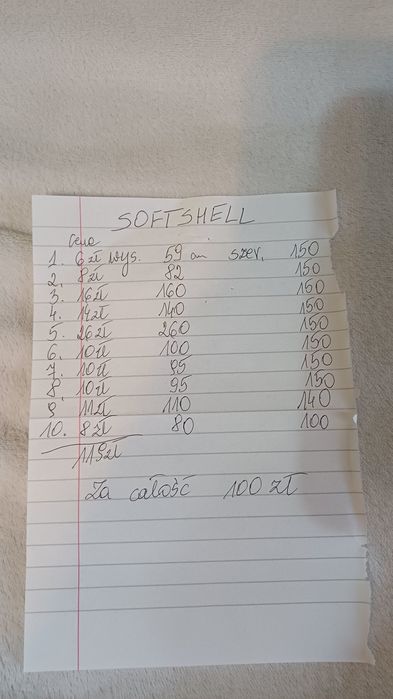 SOFTSHELL
Cena
1. 6zł wys. 59 cm szer. 150
2. 8zł 82 150
3. 16zł 160 150
4. 14zł 140 150
5. 26zł 260 150
6. 10zł 100 150
7. 10zł 95 150
8. 10zł 95 150
9 11zł 110 140
10. 8zł 80 100
119zł
Za całość 100 zł